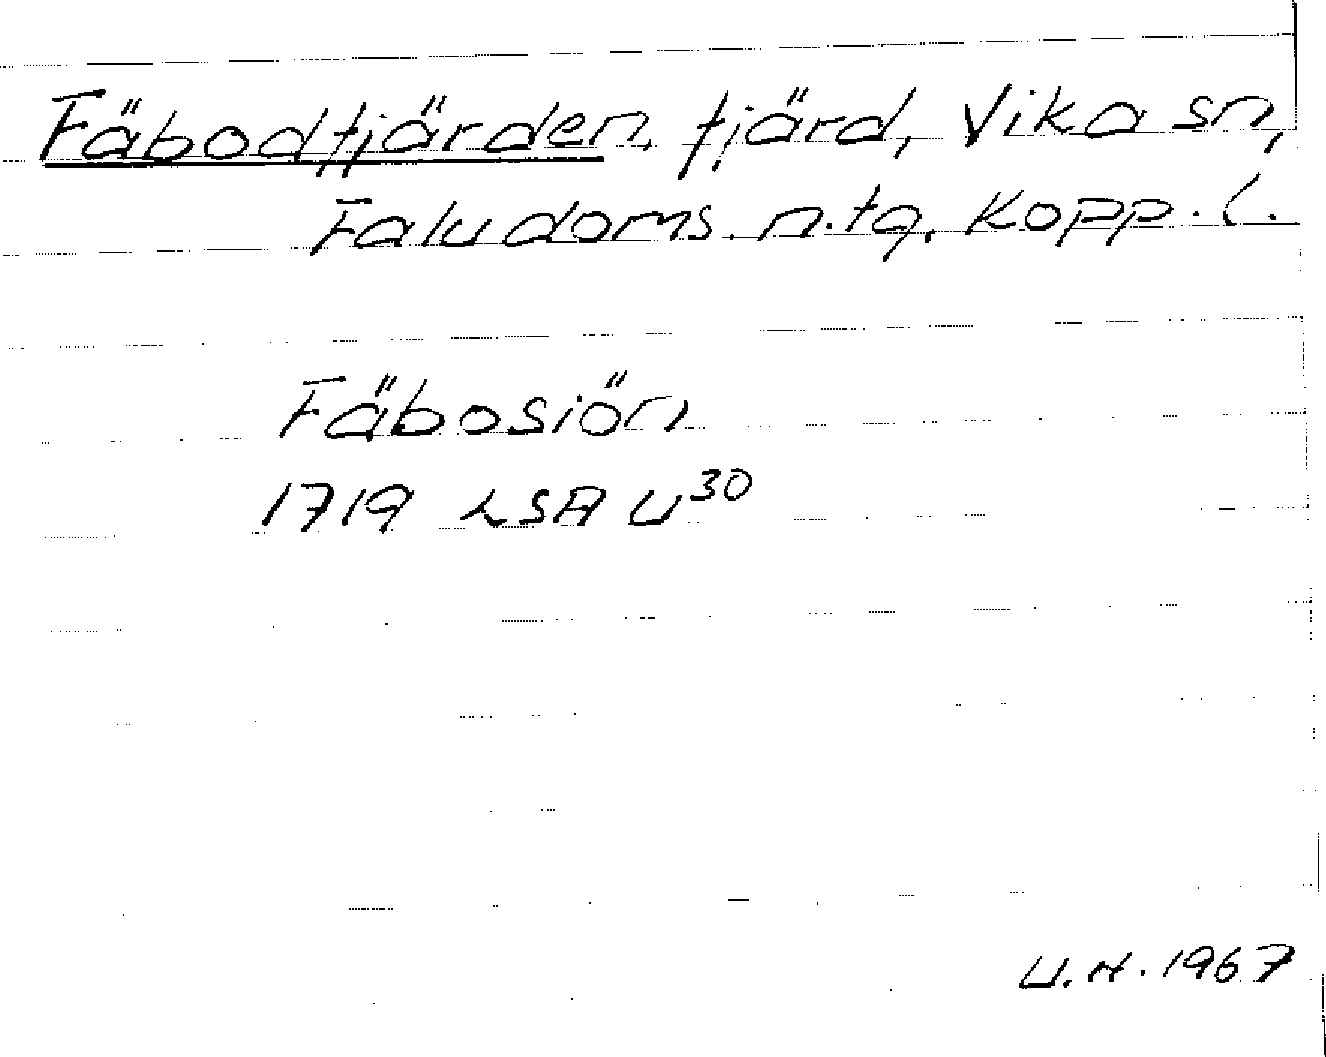 Fäbodfjärden, fjärd, Vika sn,
Falu doms. n. tg. Kopp. l.
Fäbosiön
1719 LSA U³⁰
U.H. 1967